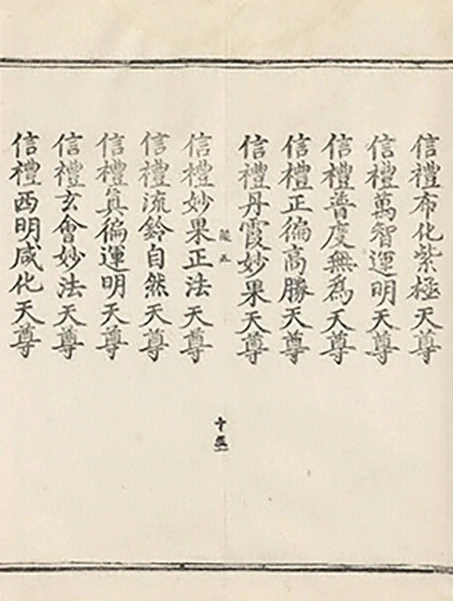 信禮布化紫極天尊
信禮萬智運明天尊
信禮普度無為天尊
信禮正徧高勝天尊
信禮丹霞妙果天尊
五
十五
信禮妙果正法天尊
信禮流鈴自然天尊
信禮真徧運明天尊
信禮玄會妙法天尊
信禮西明咸化天尊